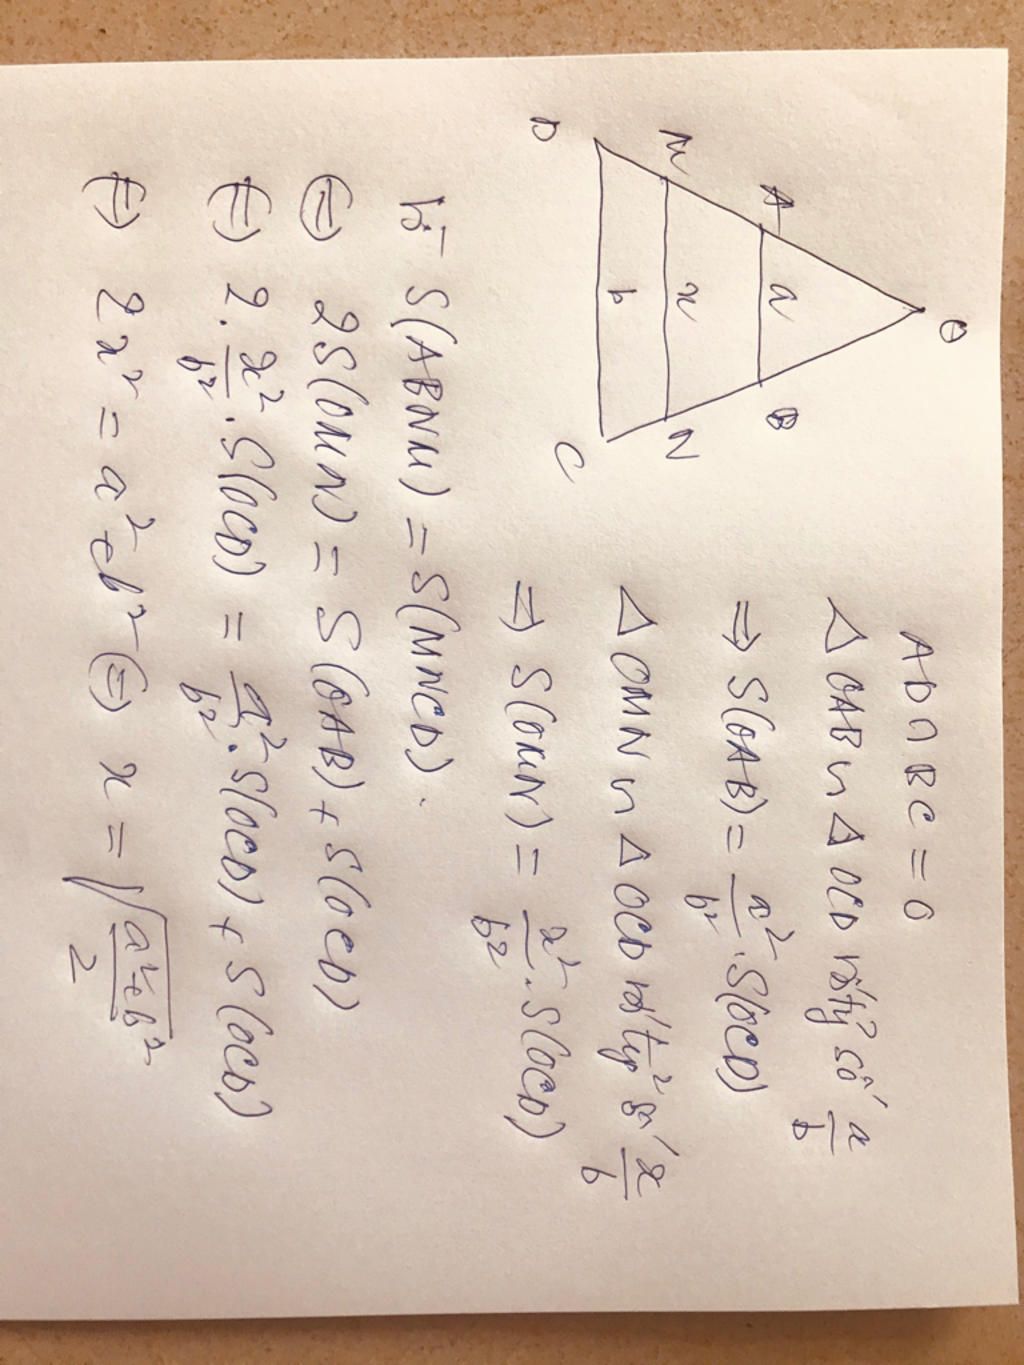 O
A a B
M x N
D b C
AD ∩ BC = O
△ OAB ∽ △ OCD với tỷ số a/b
⇒ S(OAB) = a²/b² . S(OCD)
△ OMN ∽ △ OCD với tỷ số x/b
⇒ S(OMN) = x²/b² . S(OCD)
S(ABNM) = S(MNCD) .
⇔ 2S(OMN) = S(OAB) + S(OCD)
⇔ 2 . x²/b² . S(OCD) = a²/b² . S(OCD) + S(OCD)
⇔ 2x² = a² + b² ⇔ x = √((a² + b²)/2)